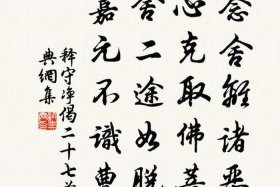 念舍離諸惡
心克取佛菩
舍二途如脫
嘉元不識曹
釋守淨偈二十七首
典網集